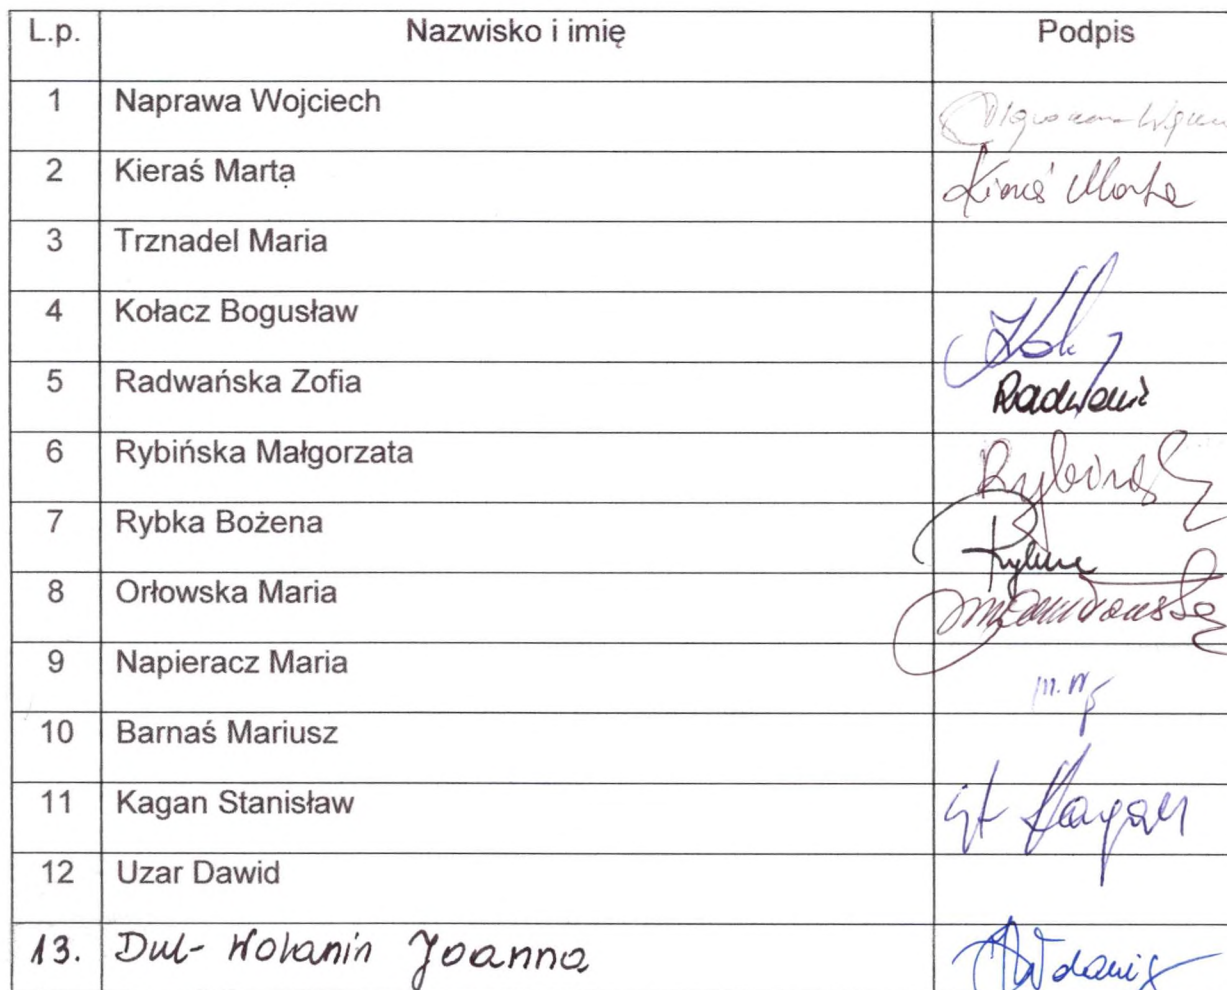 L.p. Nazwisko i imię Podpis
1 Naprawa Wojciech
2 Kieraś Marta Kieraś Marta
3 Trznadel Maria
4 Kołacz Bogusław
5 Radwańska Zofia
6 Rybińska Małgorzata
7 Rybka Bożena
8 Orłowska Maria
9 Napieracz Maria
10 Barnaś Mariusz
11 Kagan Stanisław St Kagan
12 Uzar Dawid
13. Dul- Wolanin Joanna